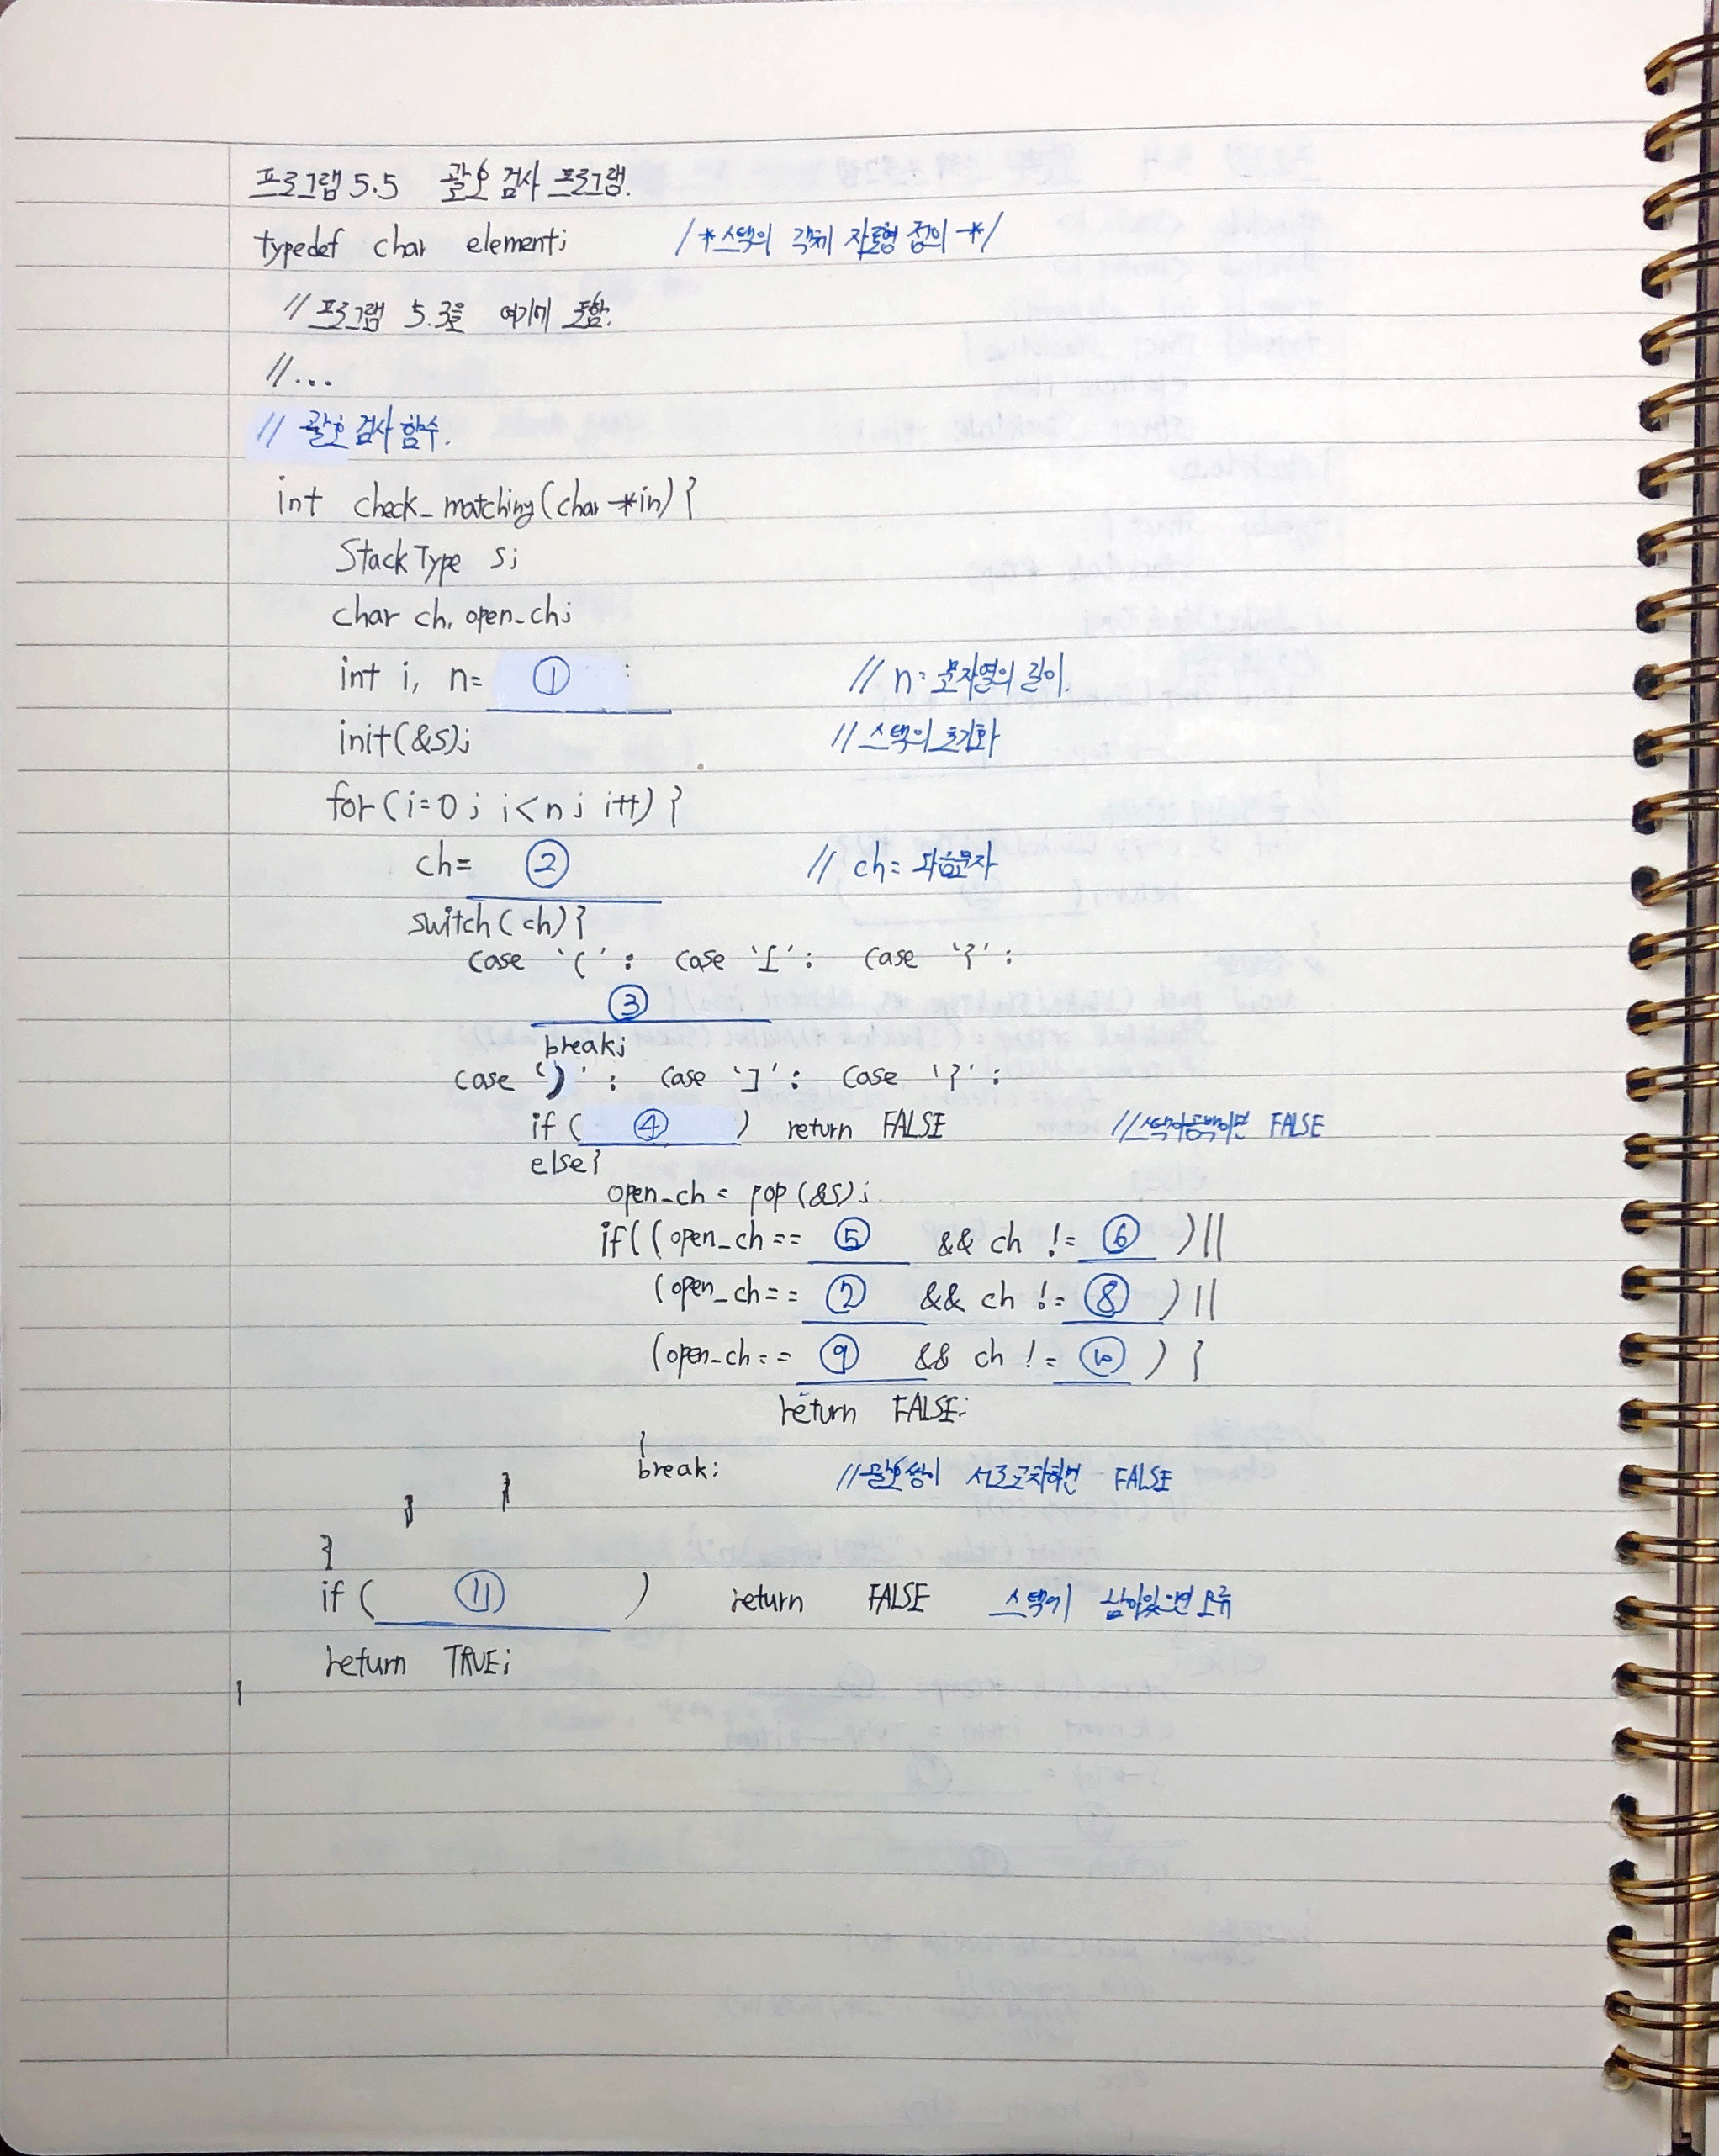 프로그램 5.5 괄호 검사 프로그램.
typedef char element; /*스택의 객체 자료형 정의*/
// 프로그램 5.3을 여기에 포함.
//...
// 괄호 검사 함수.
int check_matching(char *in) {
StackType s;
char ch, open_ch;
int i, n= ① ; // n= 문자열의 길이.
init(&s); // 스택의 초기화
for(i=0; i<n; i++) {
ch= ② // ch= 다음문자
switch(ch) {
case '(' : case '[' : case '{' :
③
break;
case ')' : case ']' : case '}' :
if ( ④ ) return FALSE //스택이공백이면 FALSE
else{
open_ch = pop(&s);
if((open_ch == ⑤ && ch != ⑥ ) ||
(open_ch == ⑦ && ch != ⑧ ) ||
(open_ch == ⑨ && ch != ⑩ ) {
return FALSE;
}
break; //괄호쌍이 서로교차하면 FALSE
}
}
}
if ( ⑪ ) return FALSE 스택에 남아있으면 오류
return TRUE;
}